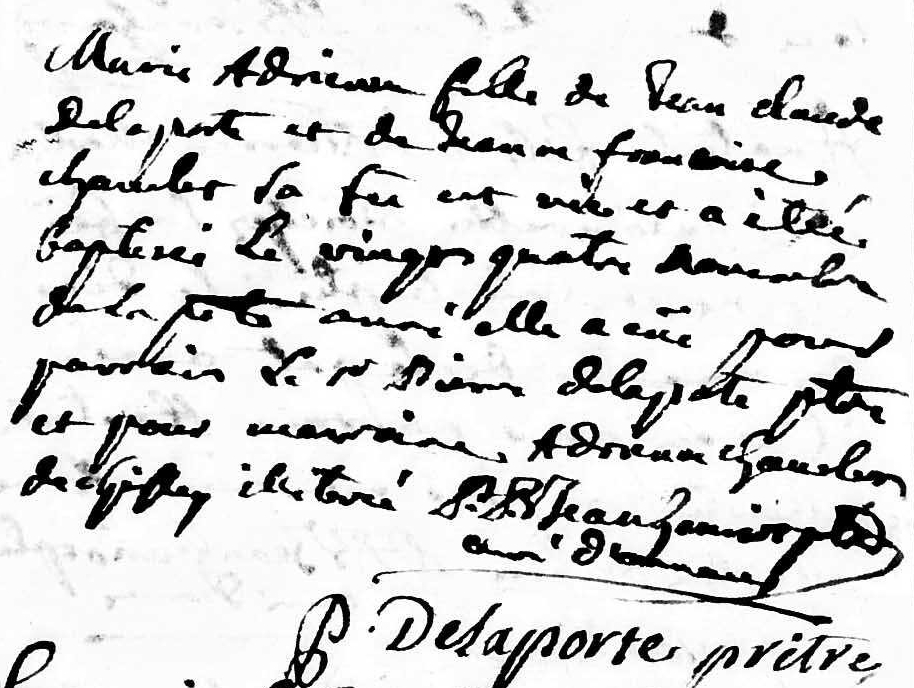 Marie Adrienne fille de Jean claude
Delaporte et de Jeanne francoise
chamber sa fe est née et a ettée
baptisée Le vingt quatre novembre
de La pnte année elle a eüe pour
parrain Le sr Pierre delaporte ptre
et pour marraine Adrienne chamber
de illiterée Jean ptre
curé d'ounans
P. Delaporte pritre